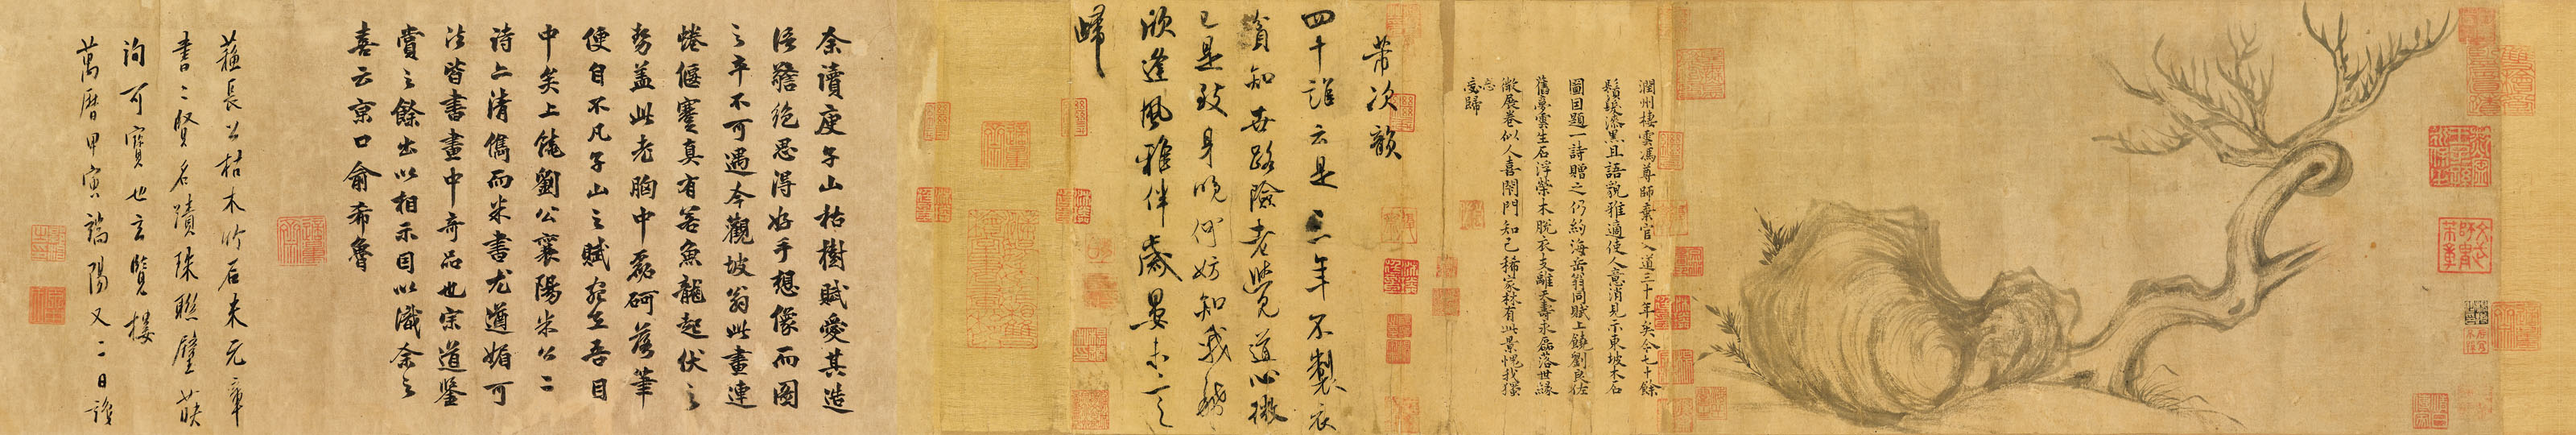 潤州棲雲馮尊師棄官入道三十年矣今七十餘
鬚髮漆黑且語貌雅適使人意消見示東坡木石
圖因題一詩贈之仍約海岳翁同賦上饒劉良佐
舊夢雲生石浮榮木脫衣支離天壽永磊落世緣
微展卷似人喜閉門知己稀家林有此景愧我獨
忘歸
芾次韻
四十誰云是三年不製衣
貧知世路險老覺道心微
已是致身晚何妨知我稀
欣逢風雅伴歲晏未言
歸
余讀庾子山枯樹賦愛其造
語警絕思得好手想像而圖
之卒不可遇今觀坡翁此畫連
蜷偃蹇真有若魚龍起伏之
勢蓋此老胸中磊砢落筆
便自不凡子山之賦宛在吾目
中矣上饒劉公襄陽米公二
詩亦清儁而米書尤遒媚可
法皆書畫中奇品也宗道鑒
賞之餘出以相示因以識余之
喜云京口俞希魯
蘇長公枯木竹石米元章
書二賢名蹟珠聯璧
詢可寶也玄覽樓
萬曆甲寅端陽又二日